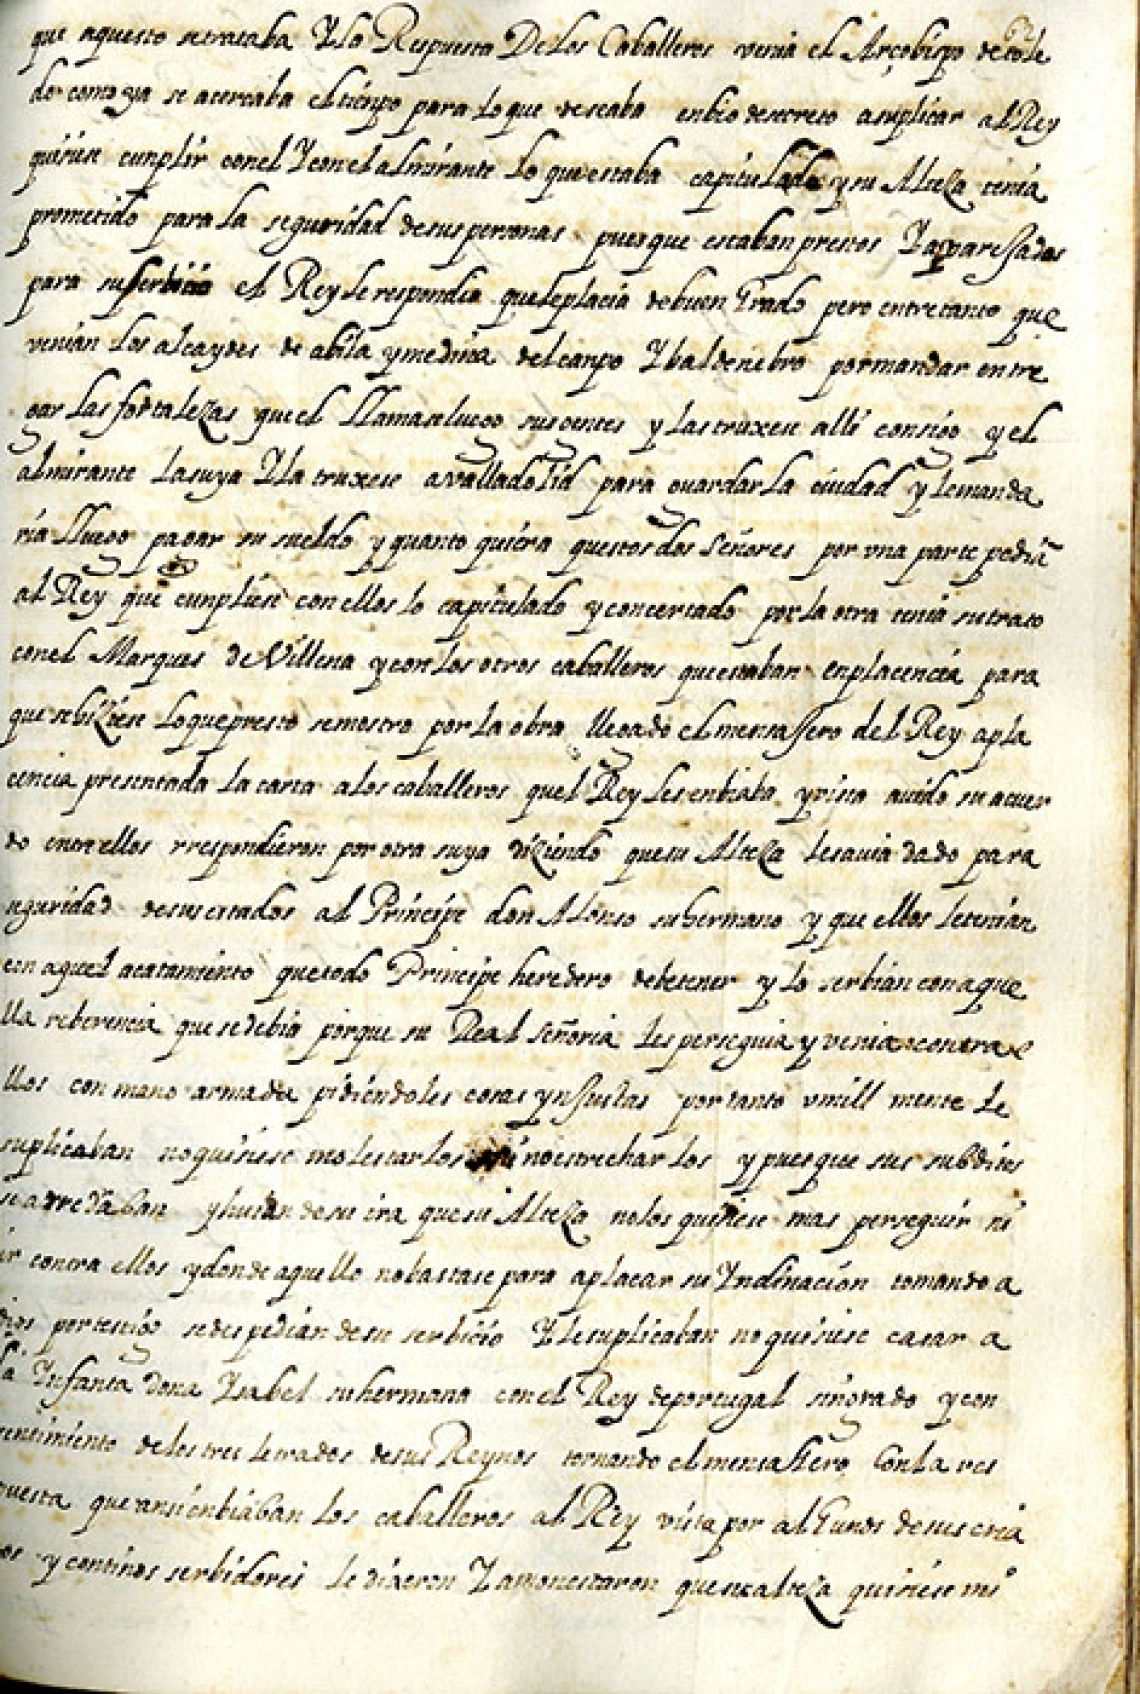 62
que aquesto se trataba Y la Respuesta De Los Caballeros venia el Arçobispo de tole
do como ya se acercaba el tienpo para Lo que deseaba enbio de secreto a suplicar al Rey
quisiese cunplir con el Y con el almirante Lo que estaba capitulado y su Alteza tenia
prometido para la seguridad de sus personas pues que estaban prestos Y aparesados
para su serbicio el Rey le respondia que le placia de buen Grado pero entre tanto que
venian Los alcaydes de abila y medina del canpo Y baldenebro por mandar entre
gar Las fortalezas que el LLamase luego sus gentes y las truxese alli consigo y el
almirante La suya Y la truxese a valladolid para guardar La ciudad y le manda
ria LLuego pagar su sueldo y quanto quiera questos dos Señores por vna parte pedia
al Rey que cunpliese con ellos lo capitulado y concertado por la otra tenia su trato
con el Marques de Villena y con los otros caballeros que estaban en placencia para
que se hiziese Lo que presto se mostro por La obra llegado el mensaJero del Rey a pla
cencia presentada La carta a los caballeros quel Rey Les enbiaba y vista auido su acuer
do entre ellos rrespondieron por otra suya diziendo que su Alteza les auia dado para
siguridad de sus estados al Principe don Alonso su hermano y que ellos le tenian
con aquel acatamiento que todo Principe heredero debe tener y lo serbian con aque
lla reberencia que se debia porque su Real Señoria Les perseguia y venia contra e
llos con mano armada pidiendoles cosas ynJustas por tanto vmill mente Le
suplicaban no quisiese molestarlos ni no estrechar los y pues que sus subditos
se arredraban y huian de su ira que su Alteza no los quisiese mas perseguir ni
ir contra ellos y donde aquello no bastase para aplacar su Yndinacion tomando a
dios por testigo se despedian de su serbicio Y le suplicaban no quisiese casar a
la Ynfanta dona Ysabel su hermana con el Rey de portugal sin grado y con
sentimiento de los tres Letrados de sus Reynos tornando el mensaJero Con La res
puesta que ansi enbiaban Los caballeros al Rey vista por alGunos de sus cria
dos y continos serbidores le dixeron Y amonestaron que su alteza quisiese mi